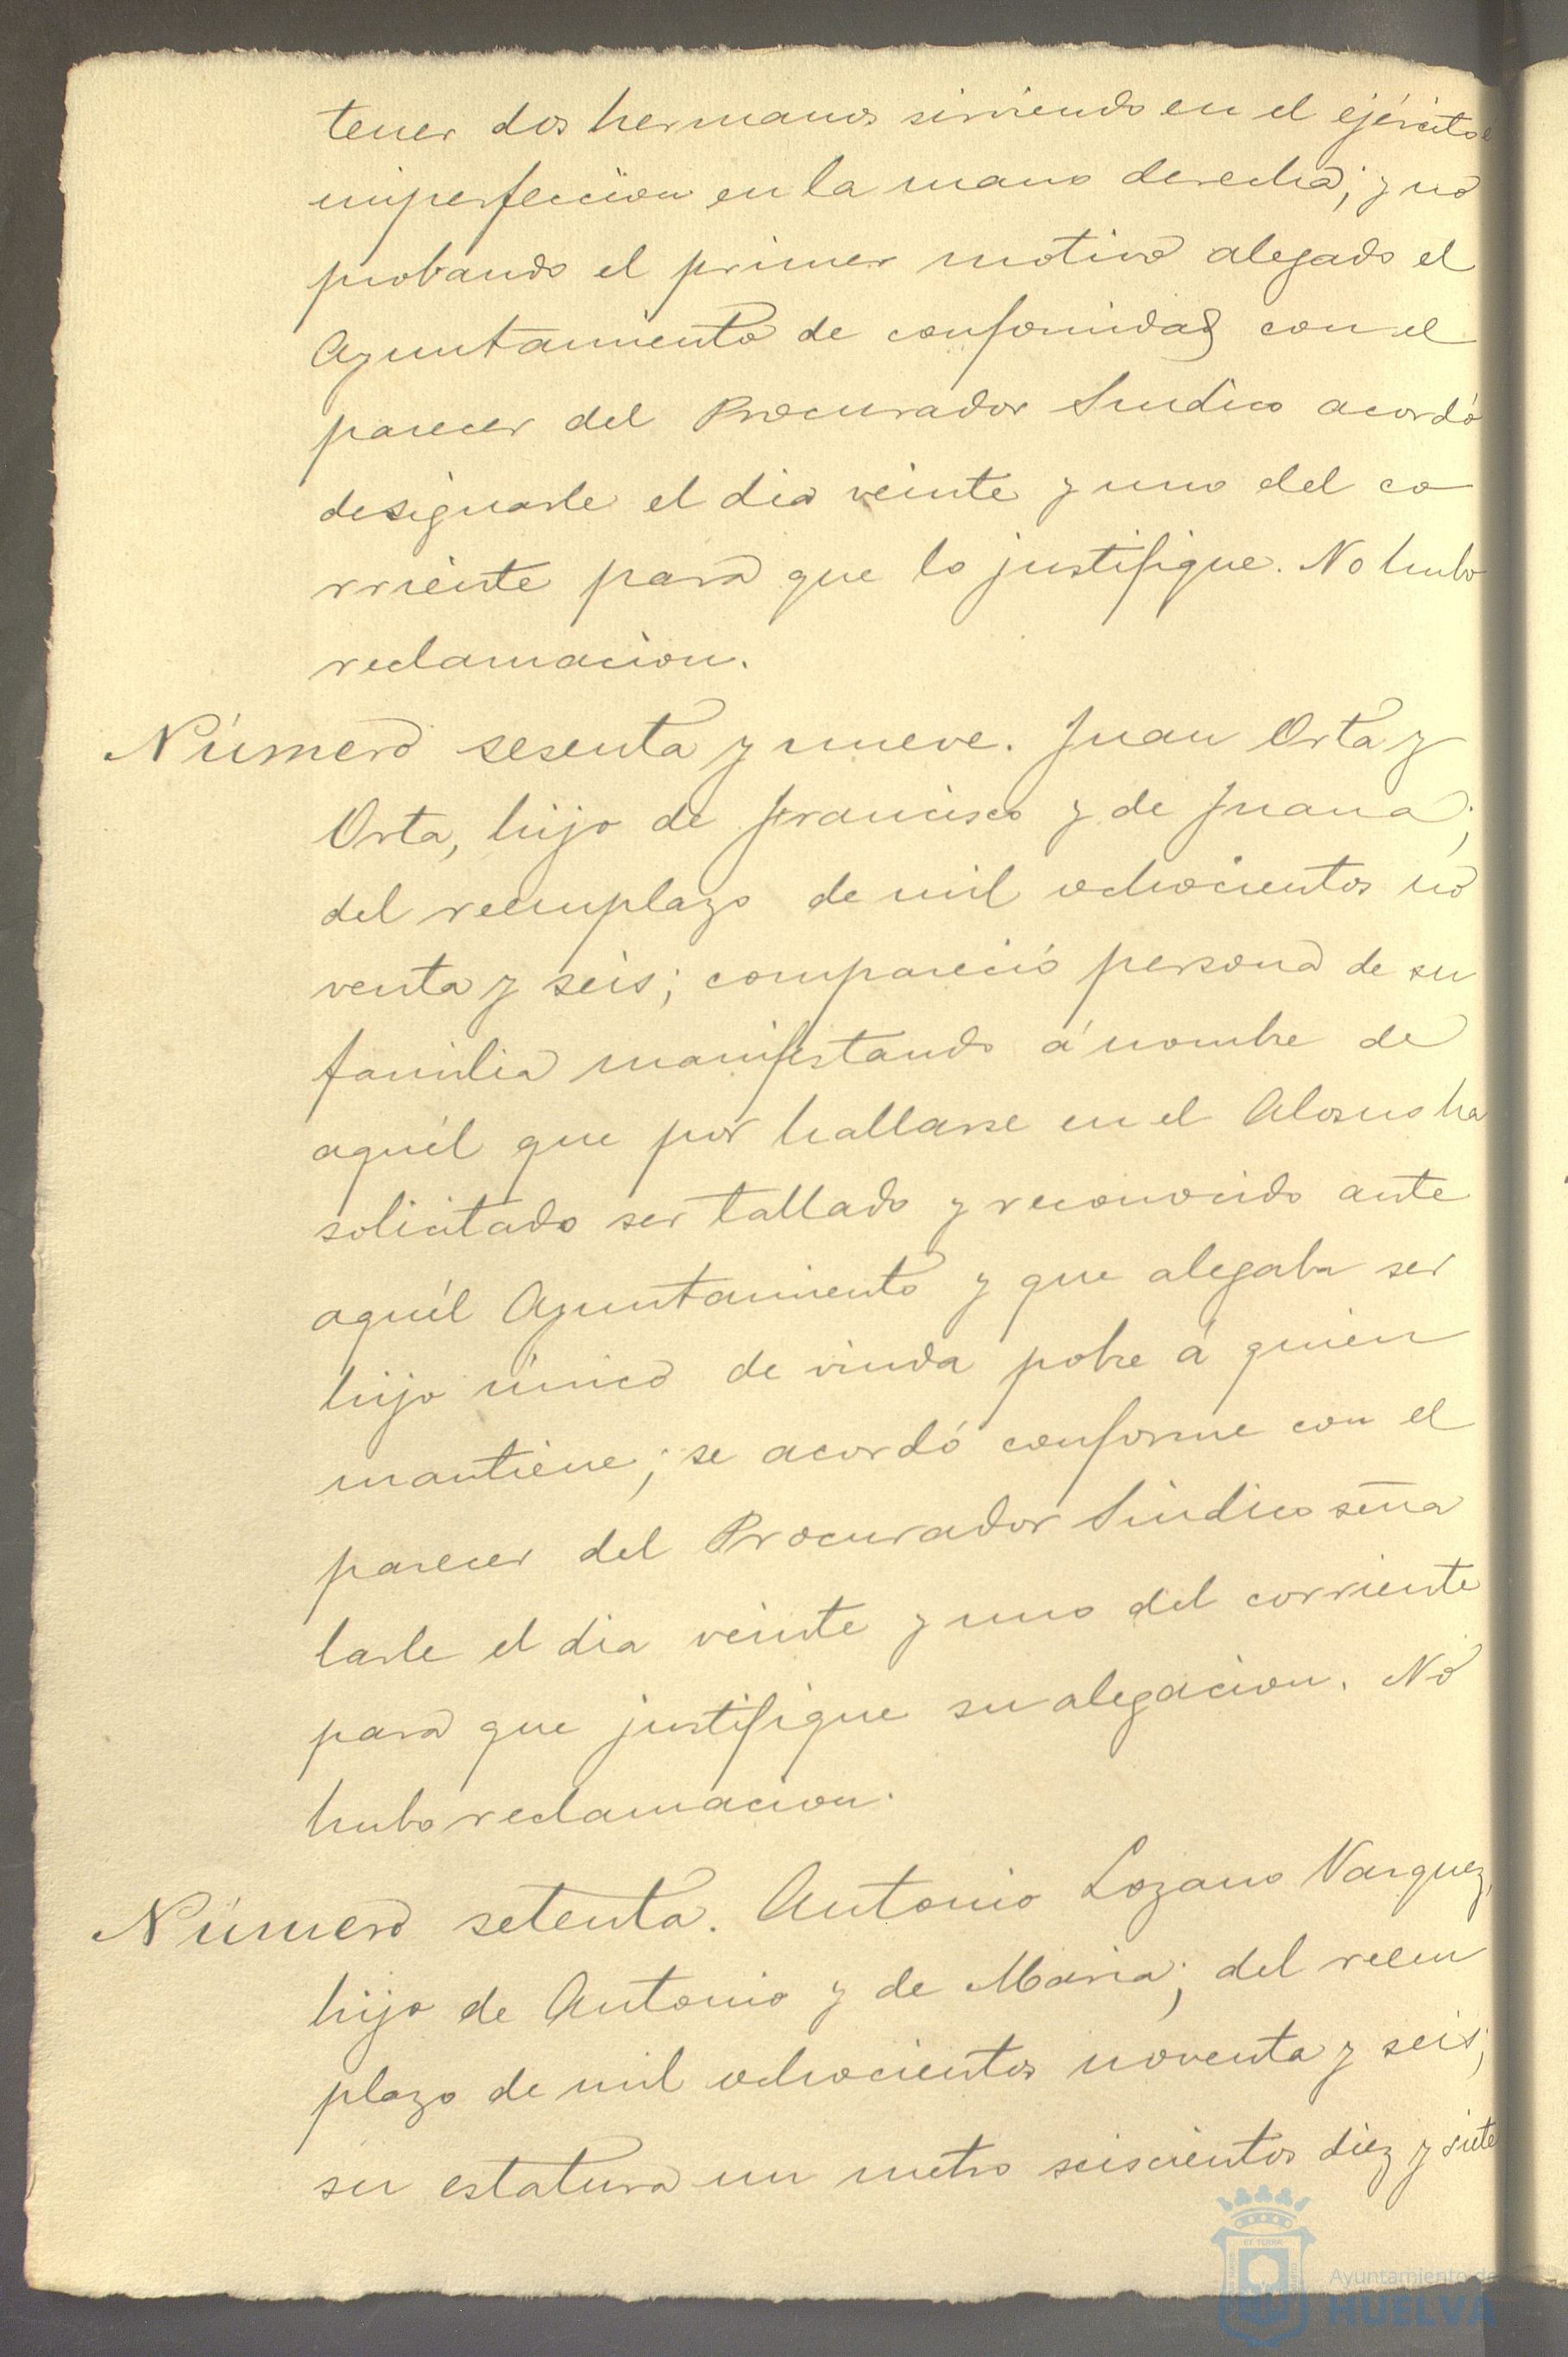 tener dos hermanos sirviendo en el ejército e
imperfeccion en la mano derecha; y no
probando el primer motivo alegado el
Ayuntamiento de conformidad con el
parecer del Procurador Sindico acordó
designarle el dia veinte y uno del co
rriente para que lo justifique. No hubo
reclamacion.
Número sesenta y nueve. Juan Orta y
Orta, hijo de Francisco y de Juana;
del reemplazo de mil ochocientos no
venta y seis; compareció persona de su
familia manifestando á nombre de
aquél que por hallarse en el Alosno ha
solicitado ser tallado y reconocido ante
aquél Ayuntamiento y que alegaba ser
hijo único de viuda pobre á quien
mantiene; se acordó conforme con el
parecer del Procurador Sindico seña
larle el dia veinte y uno del corriente
para que justifique su alegacion. No
hubo reclamacion.
Número setenta. Antonio Lozano Vazquez,
hijo de Antonio y de Maria; del reem
plazo de mil ochocientos noventa y seis;
su estatura un metro seiscientos diez y siete
Ayuntamiento de
HUELVA